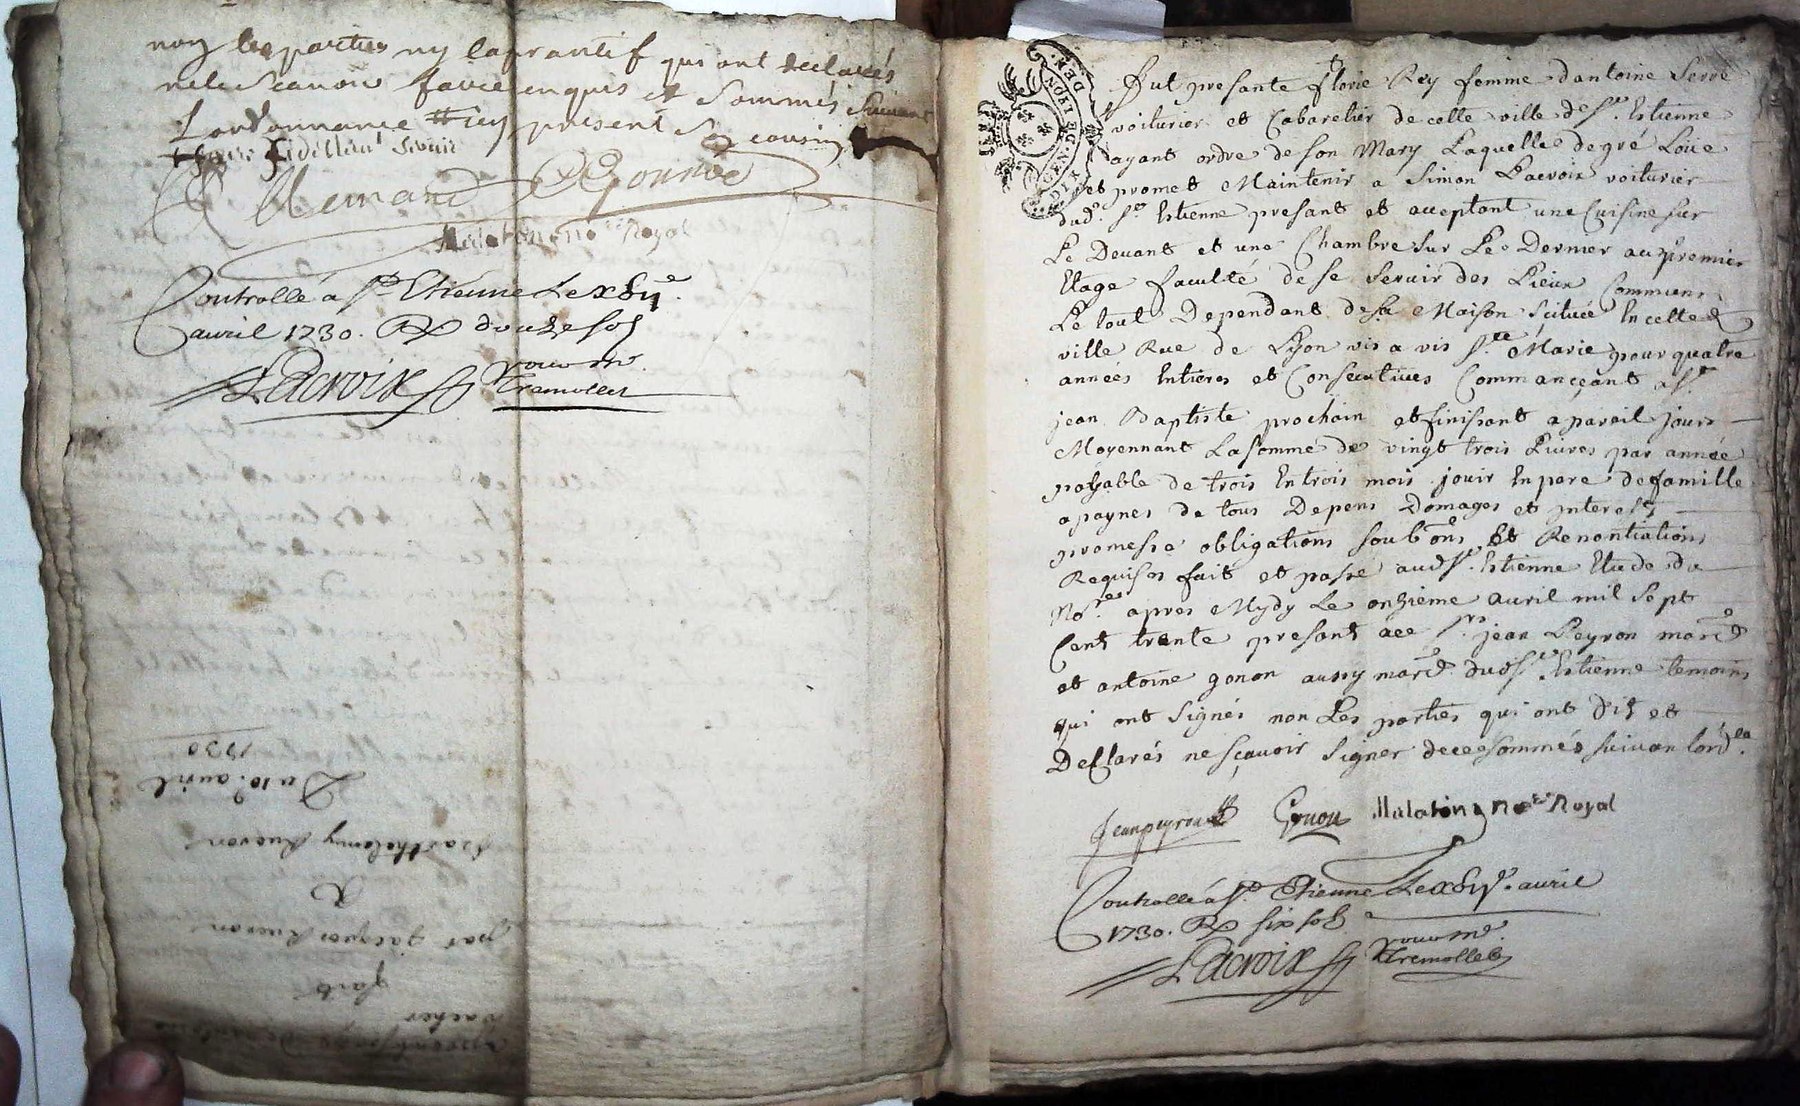 non les parties ny laprantif qui ont declarés
ne le scavoir faire enquis et sommés suivant
Lordonnance présent Son cousin
Controllé a St. Etienne Le xbii^e.
avril 1730. Rx douze sols
Lacroix pour Mr.
Tremollet
Malatin no^re Royal
Du 10^e. avril
1730
Barthelemy Rueron
par Jacques Rueron
fait
GEN. DE LYON.
Fut presante florie Rey femme dantoine Serre
voiturier et Cabaretier de cette ville de St. Estienne
ayant ordre de son Mary Laquelle de gré Loue
et promet Maintenir a Simon Lacroix voiturier
dud^t. St Estienne presant et acceptant une Cuisine sur
Le Devant et une Chambre sur Le Dernier au premier
Etage faculté de se servir des Lieux Communs
Le tout Dependant de sa Maison Scituée En cette d^e
ville Rue de Lyon vis a vis S^te. Marie pour quatre
années Entieres et Consecutives Commançant a St
jean Baptiste prochain et finissant a pareil jours
Moyennant La somme de vingt trois Livres par année
payable de trois En trois mois jouir En pere de famille
a paynes de tous Depens Domages et interests
promesse obligations soub^ons Et Renontiations
Requises fait et passé aud St. Estienne Etude du
No^re. apres Mydy Le onzieme avril mil sept
Cent trente presant sr. jean Peyron march^d
et antoine gonon aussy march^d. dud St. Estienne temoins
qui ont Signés non Les parties qui ont dit et
Declarés ne sçavoir Signer de ce sommés suivan lord^la.
Jean peyron Gonon Malatin No^re Royal
Controllé a St. Etienne Le xbii^e. avril
1730. Rx six sols
Lacroix pour Mr.
Tremollet